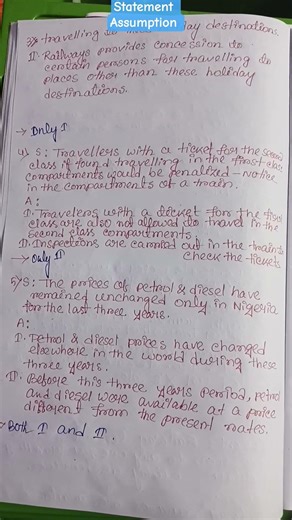 Statement
Assumption
3) travelling to holiday destinations.
II. Railways provides concession to
certain persons for travelling to
places other than these holiday
destinations.
→ Only I
4) S: Travellers with a ticket for the second
class if found travelling in the first class
compartments would be penalized - Notice
in the compartments of a train.
A:
I. Travelers with a ticket for the first
class are also not allowed to travel in the
second class compartments.
II. Inspections are carried out in the trains to
→ Only II check the tickets
5) S: The prices of petrol & diesel have
remained unchanged only in Nigeria
for the last three years.
A:
I. Petrol & diesel prices have changed
elsewhere in the world during these
three years.
II. Before this three years period, petrol
and diesel were available at a price
different from the present rates.
→ Both I and II.